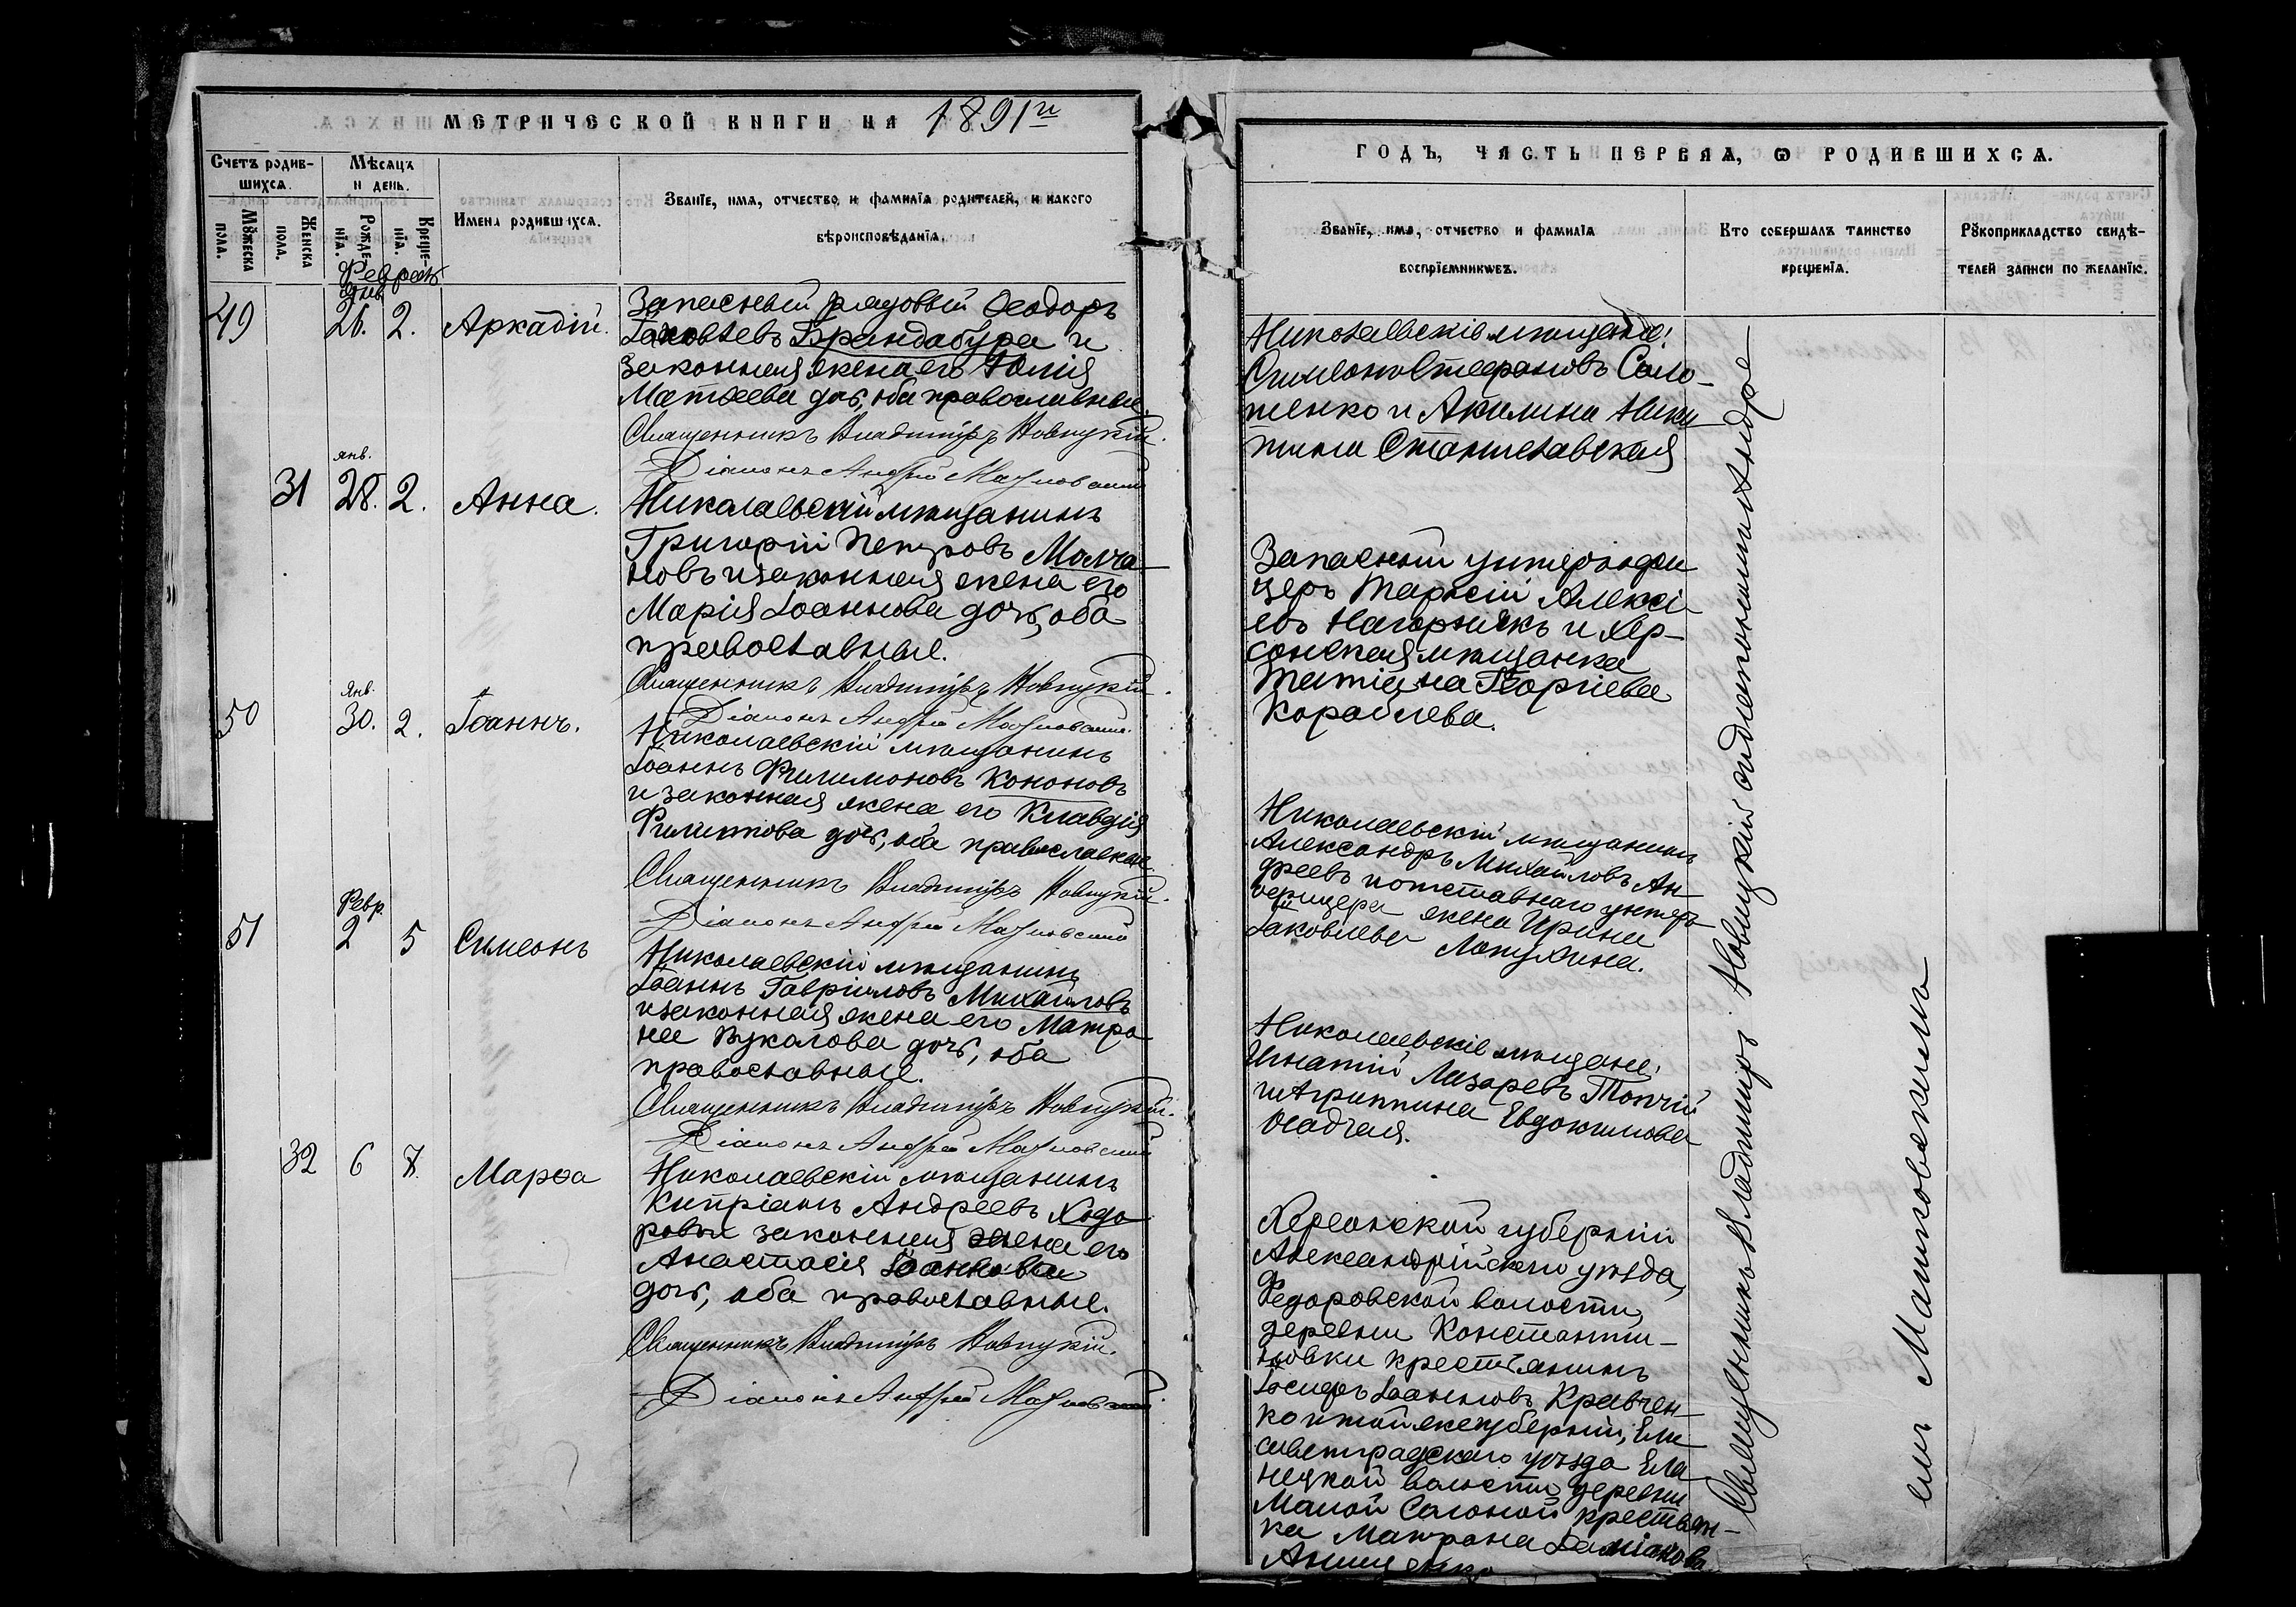 МЕТРИЧЕСКОЙ КНИГИ НА 1891й
Счетъ родив-
шихся.
Мѣсяцъ
и день.
Мꙋжеска
пола.
Женска
пола.
Рожде-
нїя.
Креще-
нїя.
Имена родившихся.
Званїе, имя, отчество и фамилїя родителей, и какого
вѣроисповѣданїя.
Февраль
49
Янв.
26. 2.
Аркадій.
Запасный рядовый Ѳеодоръ
Іаковлевъ Брандабура и
законная жена его Юлія
Матѳеева дочь, оба православные
Священникъ Владиміръ Новицкій.
Діаконъ Андрей
31
янв.
28. 2.
Анна.
Николаевскій мѣщанинъ
Григорій Петровъ Молча
новъ и законная жена его
Марія Іоаннова дочь, оба
православные.
Священникъ Владиміръ Новицкій.
Діаконъ Андрей
50
Янв.
30. 2.
Іоаннъ.
Николаевскій мѣщанинъ
Іоаннъ Филимоновъ Кононовъ
и законная жена его Клавдія
Филиппова дочь, оба православные
Священникъ Владиміръ Новицкій.
Діаконъ Андрей
51
Февр.
2 5
Симеонъ
Николаевскій мѣщанинъ
Іоаннъ Гавріиловъ Михайловъ
и законная жена его Матро
на Вукалова дочь, оба
православные.
Священникъ Владиміръ Новицкій.
Діаконъ Андрей
32 6 7.
Марѳа
Николаевскій мѣщанинъ
Кипріанъ Андреевъ Ходо
ровъ и законная жена его
Анастасія Іоаннова
дочь, оба православные.
Священникъ Владиміръ Новицкій.
Діаконъ Андрей
ГОДЪ, ЧАСТЬ ПЕРВАЯ, Ѡ РОДИВШИХСЯ.
Званїе, имя, отчество и фамилїя
воспрїемникѡвъ.
Кто совершалъ таинство
крещенїя.
Рꙋкоприкладство свидѣ-
телей записи по желанїю.
Николаевскіе мѣщане:
Симеонъ Стефановъ Соло-
шенко и Акилина Ники
тина Станиславская
Запасный унтеръ офи
церъ Тарасій Алексі-
евъ Нагорнякъ и Хер-
сонская мѣщанка
Татіана Георгіева
Кораблева.
Николаевскій мѣщанинъ
Александръ Михайловъ Ан-
дреевъ и отставнаго унтеръ
офицера жена Ирина
Іаковлева Лопухина.
Николаевскіе мѣщане:
Игнатій Лазаревъ Топчій
и Агриппина Евдокимова
Осадчая.
Херсонской губерніи
Александрійскаго уѣзда,
Федоровской волости,
деревни Константи-
новки крестьянинъ
Іосифъ Іоанновъ Кравчен-
ко и той же губерніи, Ели
саветградскаго уѣзда Ела
нецкой волости деревни
Малой Солоной крестьян-
ка Матрона Даміанова
Анищенко
Священникъ Владиміръ Новицкій съ діакономъ Андре
емъ